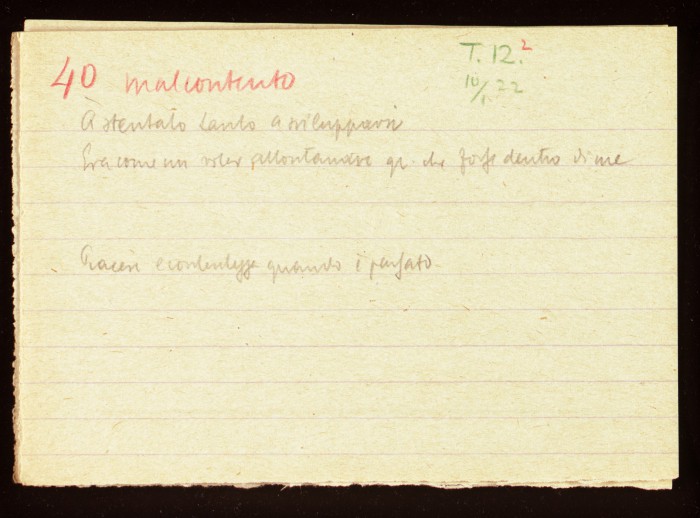 40 malcontento
T. 12.²
10/1 22
À stentato tanto a svilupparsi
Era come un voler allontanare qc. che fosse dentro di me
Piacere e contentezza quando è passato.